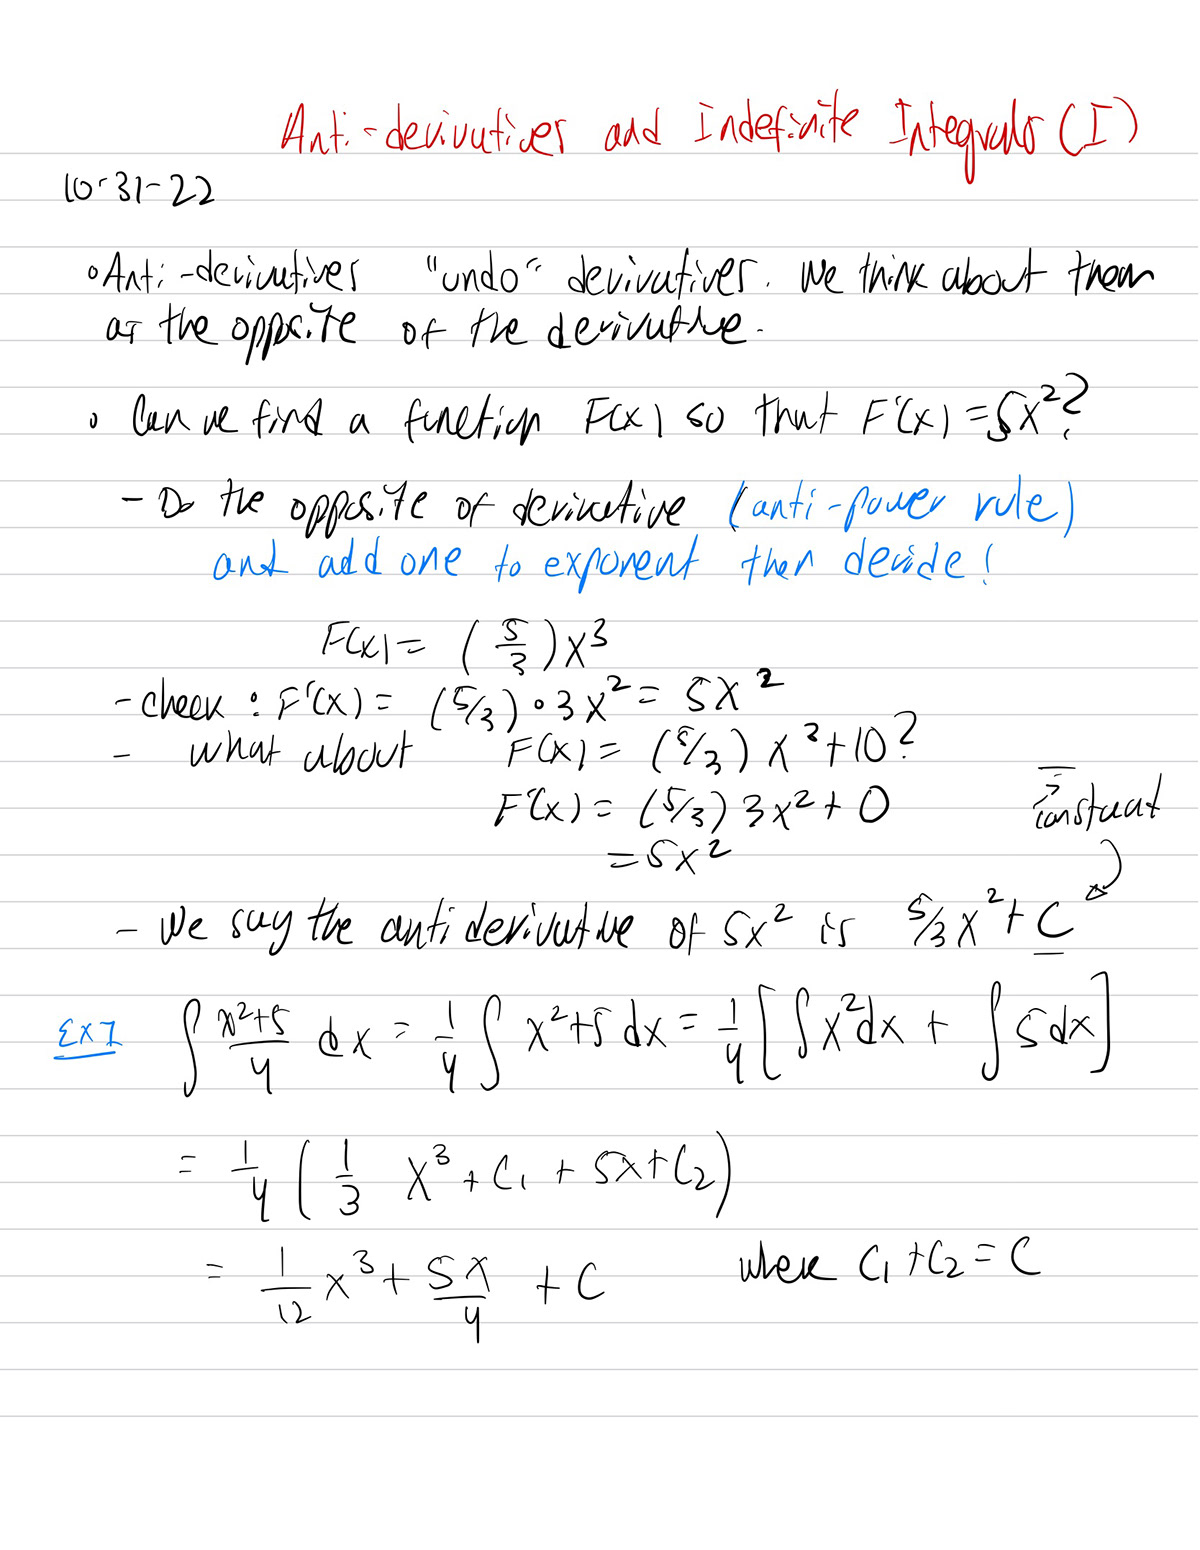 Anti-derivatives and Indefinite Integrals (I)
10-31-22
◦ Anti-derivatives "undo" derivatives. We think about them
as the opposite of the derivative.
◦ Can we find a function F(x) so that F'(x) = 5x²?
- Do the opposite of derivative (anti-power rule)
and add one to exponent then devide!
F(x) = (5/3)x³
- check : F'(x) = (5/3)•3x² = 5x²
- what about F(x) = (5/3)x³+10?
F'(x) = (5/3)3x²+0
= 5x²
constant
- We say the antiderivative of 5x² is 5/3x²+C
Ex1 ∫ (x²+5)/4 dx = 1/4 ∫ x²+5 dx = 1/4 [∫x²dx + ∫5dx]
= 1/4 (1/3 x³ + C₁ + 5x+C₂)
= 1/12 x³ + 5x/4 + C where C₁+C₂=C